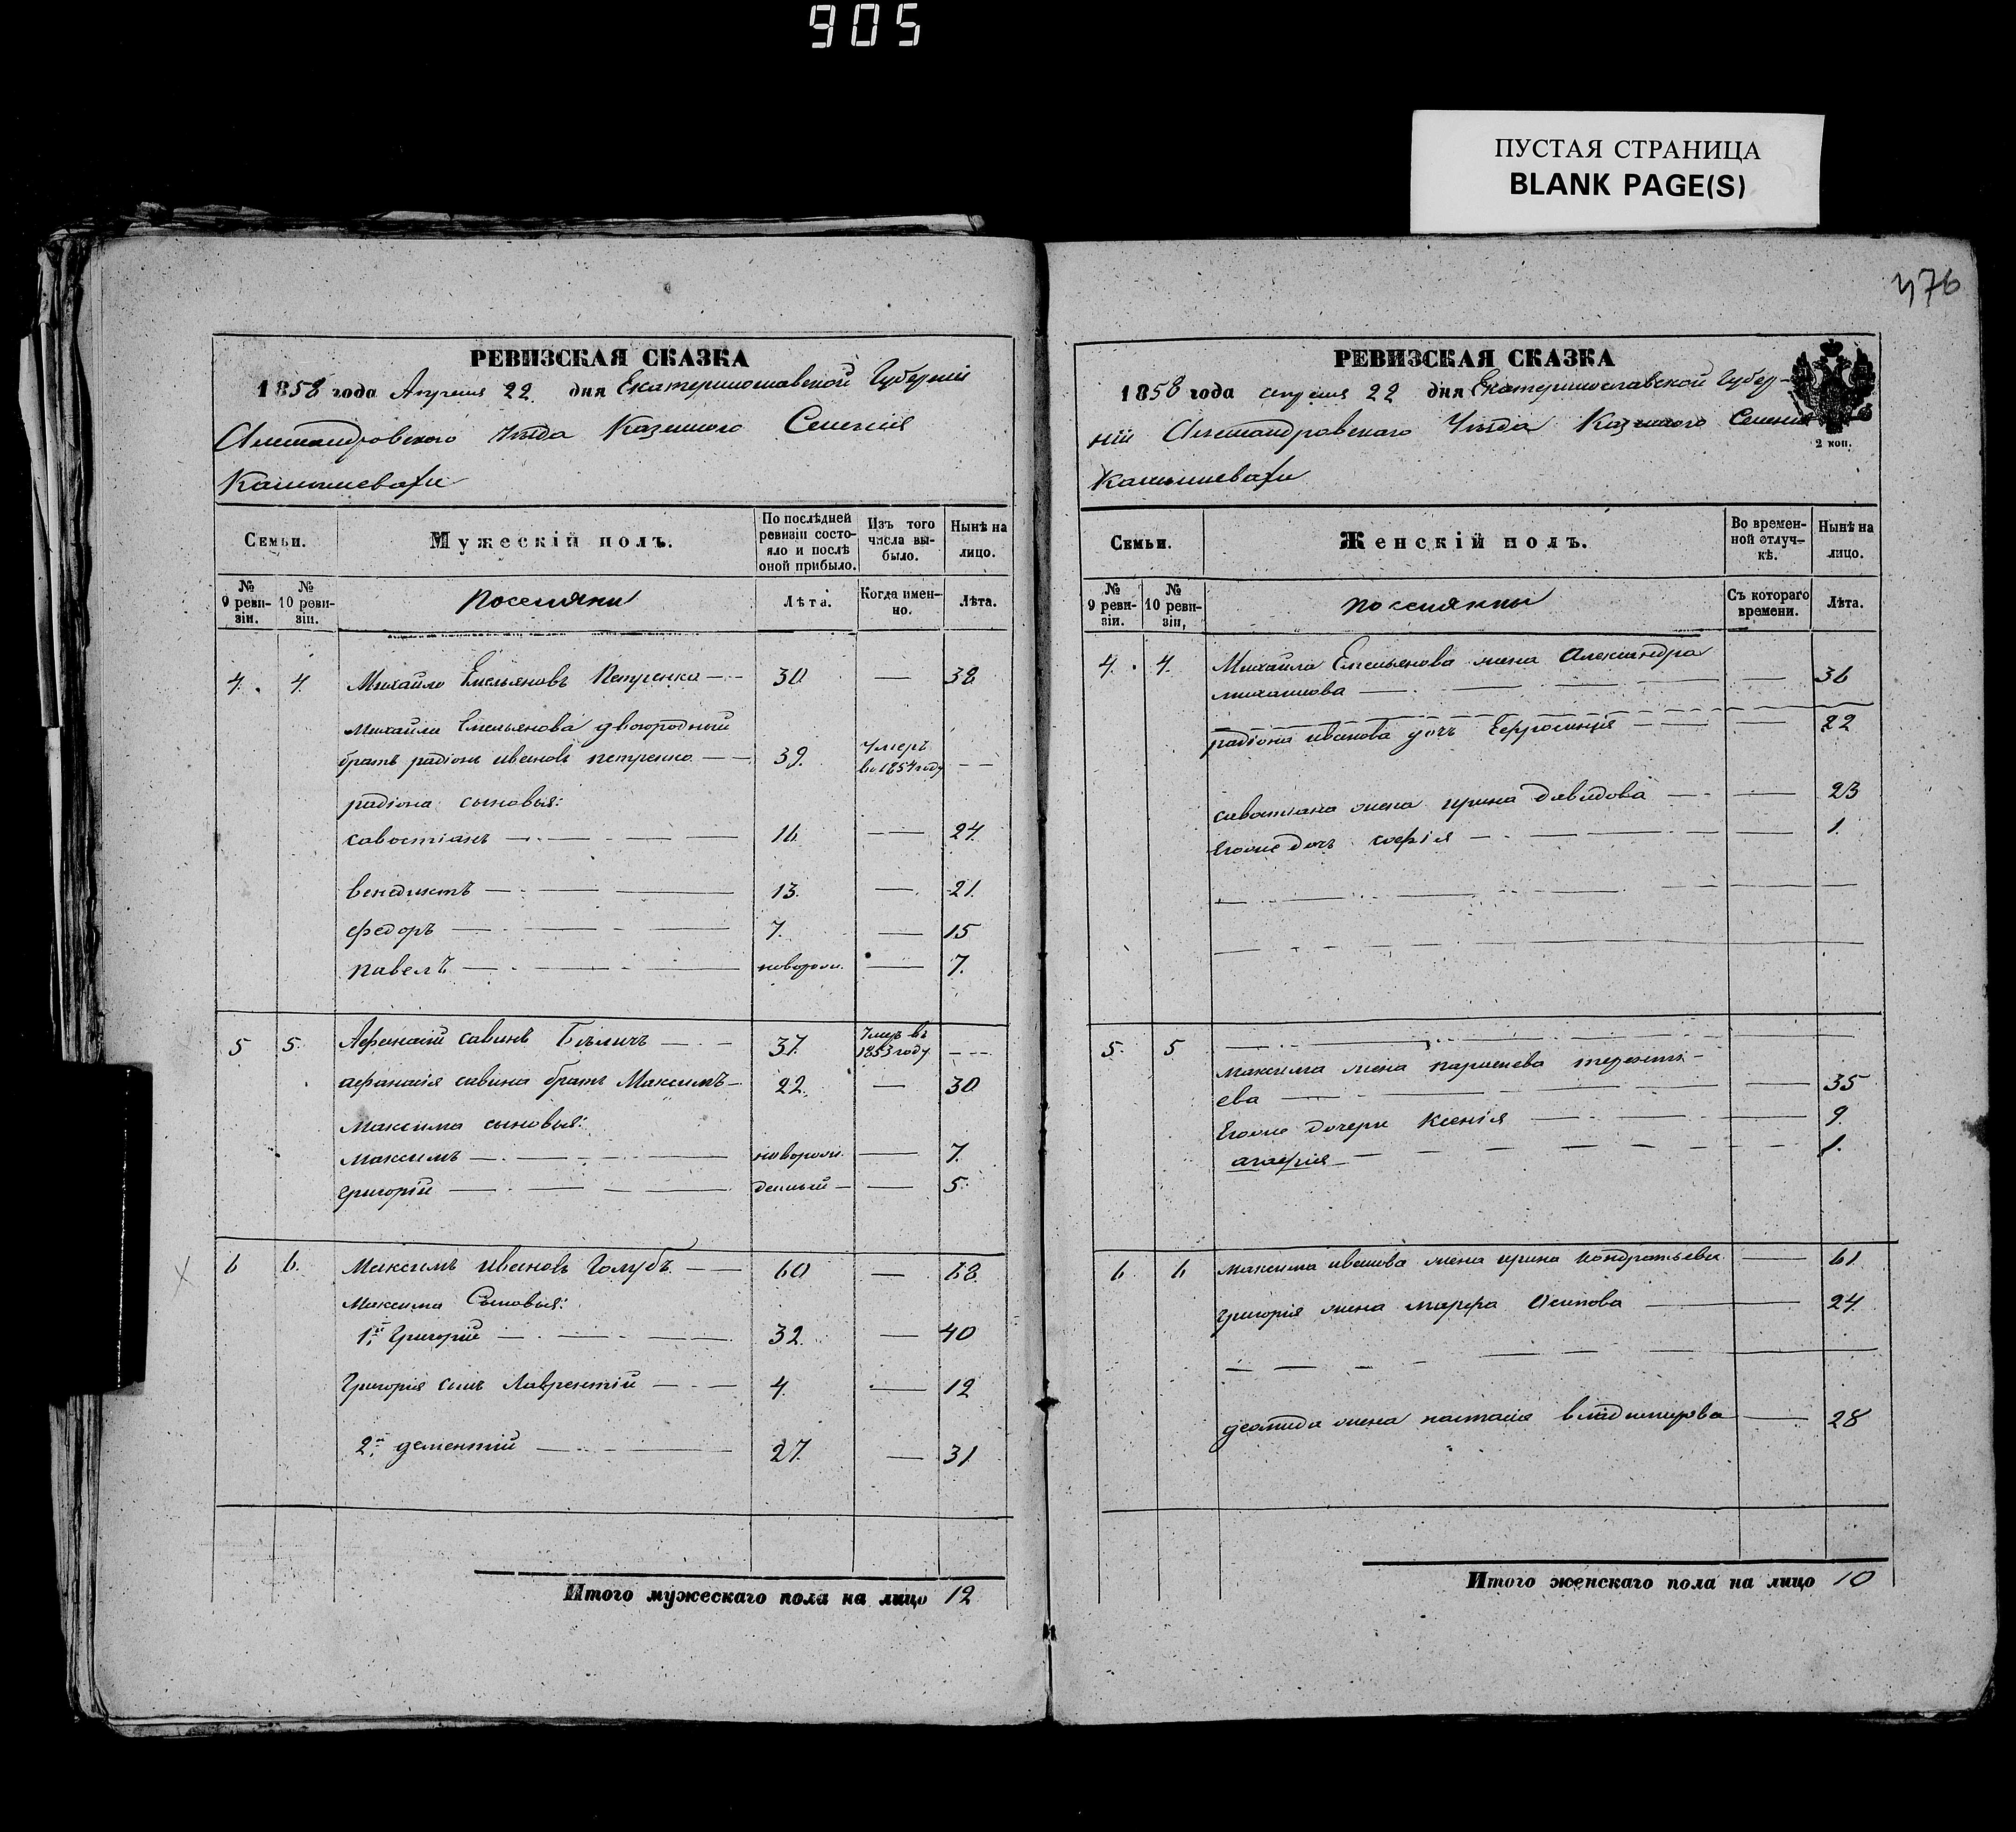 905
ПУСТАЯ СТРАНИЦА
BLANK PAGE(S)
476
РЕВИЗСКАЯ СКАЗКА
1858 года Апреля 22 дня Екатеринославской Губерніи
Александровскаго Уѣзда Казеннаго Селенія
Камышевахи
Семьи.
Мужескій полъ.
По послѣдней ревизіи состояло и послѣ оной прибыло.
Изъ того числа выбыло.
Нынѣ на лицо.
№ 9 ревизіи.
№ 10 ревизіи.
Поселяни
Лѣта.
Когда именно.
Лѣта.
4. 4. Михайло Емельяновъ Петренко 30 — 38
Михайли Емельянова двоюродный
братъ радіонъ ивановъ петренко 39. Умеръ во 1854 году — —
радіона сыновья:
савостіанъ 16 — 24
венедиктъ 13. — 21.
федоръ 7. — 15
павелъ новорож. — 7.
5 5. Афанасій савинъ Бѣличъ 37. Умеръ въ 1853 году — —
афанасія савина братъ Максимъ 22. — 30
Максима сыновья:
максимъ новорож. — 7.
григорій денный — 5.
6 6. Максимъ ивановъ Голубъ 60 — 68
Максима Сыновья:
1й Григорій 32. — 40
Григорія сынъ Лаврентій 4. — 12
2й дементій 27. — 31
Итого мужескаго пола на лицо 12
РЕВИЗСКАЯ СКАЗКА
1858 года апреля 22 дня Екатеринославской Губер-
ніи Александровскаго Уѣзда Казеннаго Селенія
Камышевахи
2 коп.
Семьи.
Женскій полъ.
Во временной отлучкѣ.
Нынѣ на лицо.
№ 9 ревизіи.
№ 10 ревизіи,
поселянки
Съ котораго времени.
Лѣта.
4. 4. Михайла Емельянова жена Александра
михайлова — 36
радіона иванова дочь Ефросинія — 22
савостіана жена ирина давидова — 23
Егоже дочь софія — 1.
5. 5
максима жена параскева теренти-
ева — 35
Егоже дочери Ксенія — 9.
агафія — 1.
6. 6 максима иванова жена ирина кондратьева — 61
григорія жена марфа Осипова — 24
жена настасія владимирова — 28
Итого женскаго пола на лицо 10